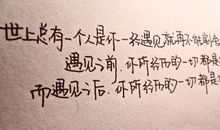 世上总有一个人是你一经遇见就再不能割舍
遇见之前.你所经历的一切都是
而遇见之后.你所经历的一切都是